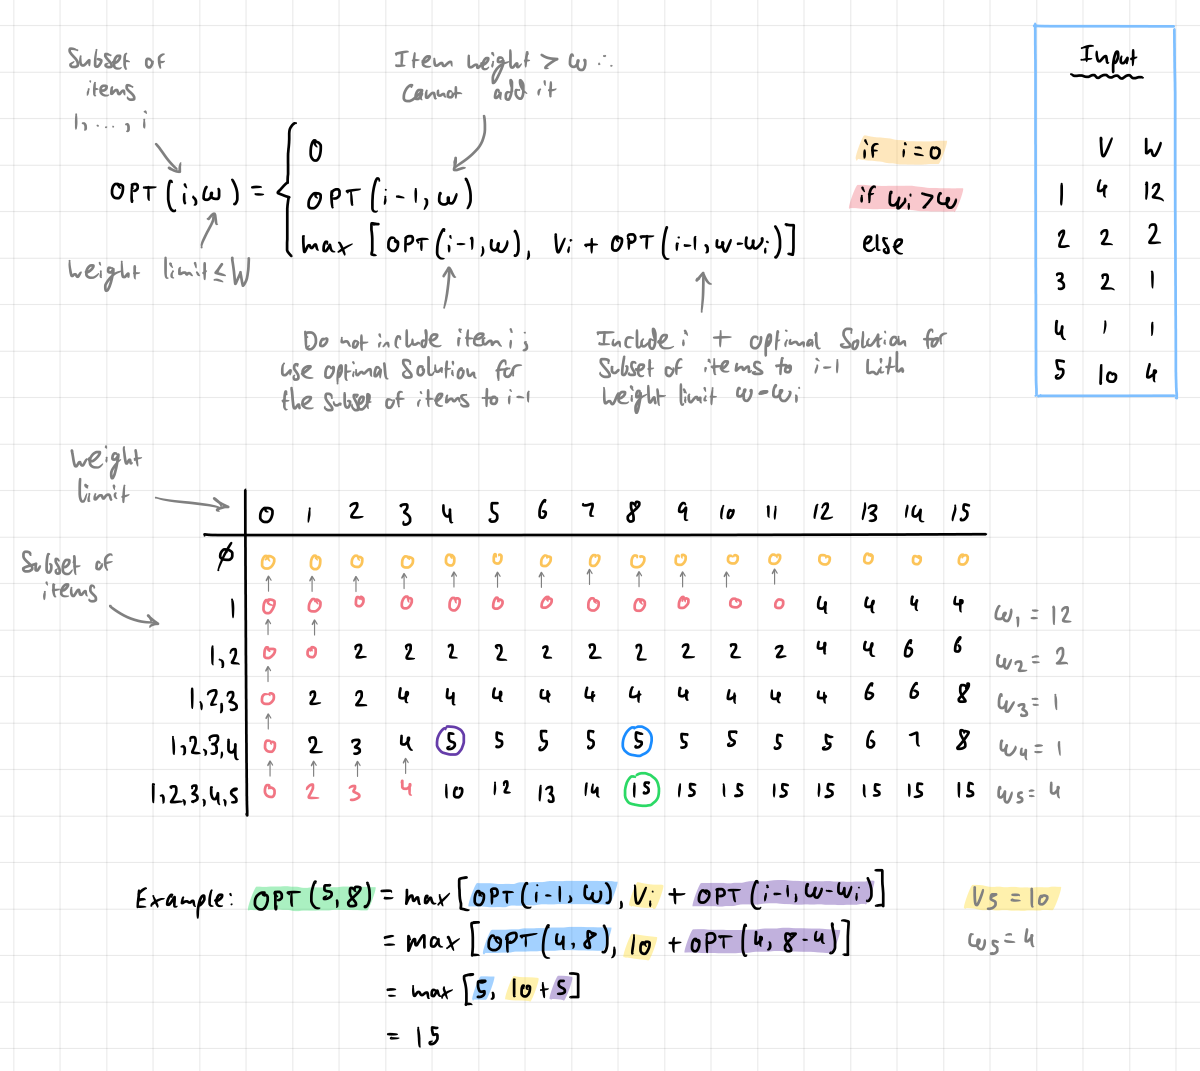 Subset of
items
1, ..., i
Item weight > w ∴
cannot add it
OPT(i,w) =
0 if i=0
OPT(i-1, w) if wi > w
max [OPT(i-1, w), Vi + OPT(i-1, w-wi)] else
weight limit ≤ W
Do not include item i;
use optimal solution for
the subset of items to i-1
Include i + optimal solution for
subset of items to i-1 with
weight limit w-wi
Input
V W
1 4 12
2 2 2
3 2 1
4 1 1
5 10 4
weight
limit
Subset of
items
0 1 2 3 4 5 6 7 8 9 10 11 12 13 14 15
∅ 0 0 0 0 0 0 0 0 0 0 0 0 0 0 0 0
1 0 0 0 0 0 0 0 0 0 0 0 0 4 4 4 4 w1 = 12
1,2 0 0 2 2 2 2 2 2 2 2 2 2 4 4 6 6 w2 = 2
1,2,3 0 2 2 4 4 4 4 4 4 4 4 4 4 6 6 8 w3 = 1
1,2,3,4 0 2 3 4 5 5 5 5 5 5 5 5 5 6 7 8 w4 = 1
1,2,3,4,5 0 2 3 4 10 12 13 14 15 15 15 15 15 15 15 15 w5 = 4
Example: OPT(5,8) = max [OPT(i-1, w), Vi + OPT(i-1, w-wi)] V5 = 10
= max [OPT(4,8), 10 + OPT(4, 8-4)] w5 = 4
= max [5, 10+5]
= 15